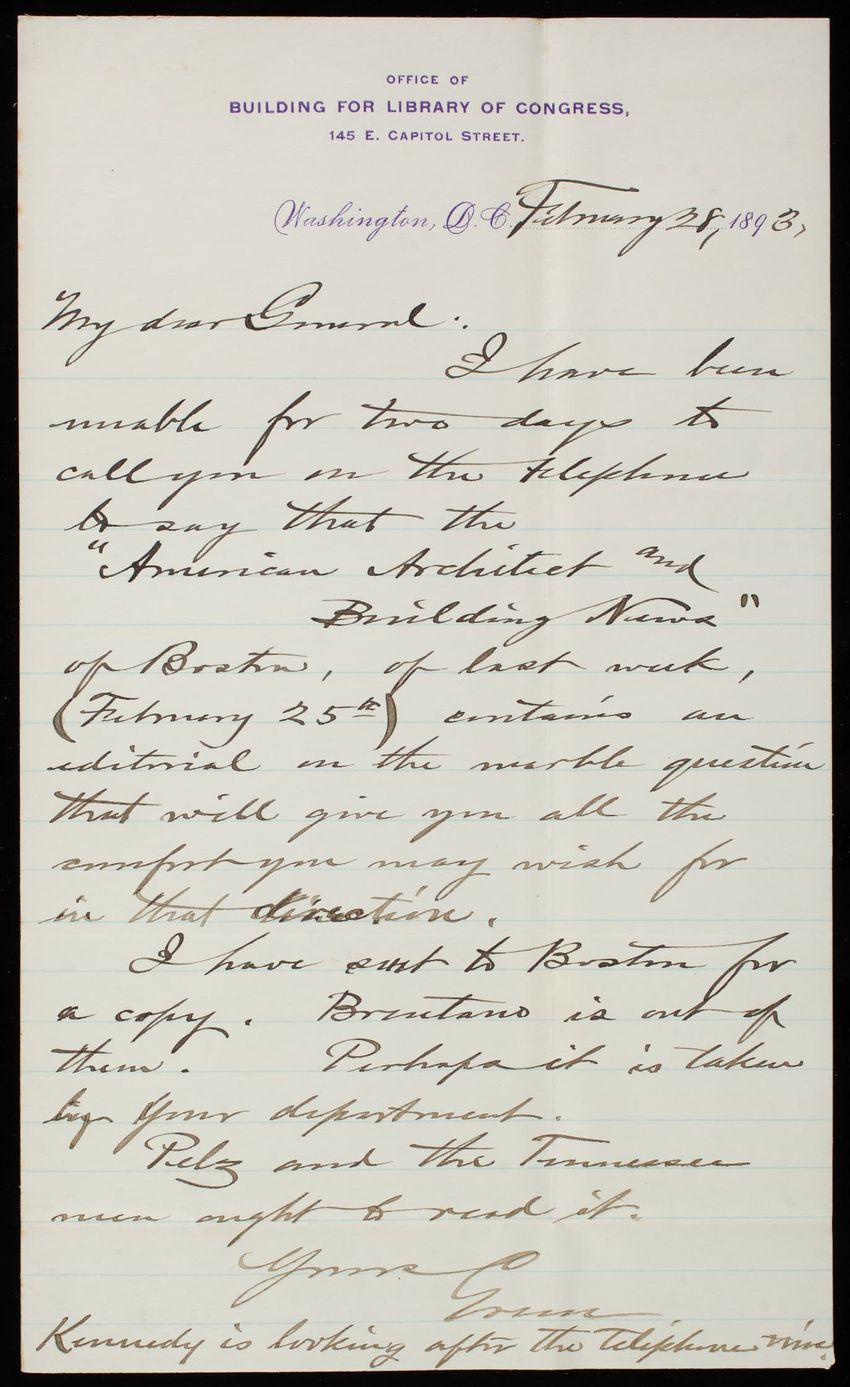 OFFICE OF
BUILDING FOR LIBRARY OF CONGRESS,
145 E. CAPITOL STREET.
Washington, D. C. February 28, 1893,
My dear General:
I have been
unable for two days to
call you on the telephone
to say that the
"American Architect and
Building News"
of Boston, of last week,
(February 25th) contains an
editorial on the marble question
that will give you all the
comfort you may wish for
in that direction.
I have sent to Boston for
a copy. Brentano is out of
them. Perhaps it is taken
by your department.
Pelz and the Tennessee
men ought to read it.
Yours
Green
Kennedy is looking after the telephone wire.